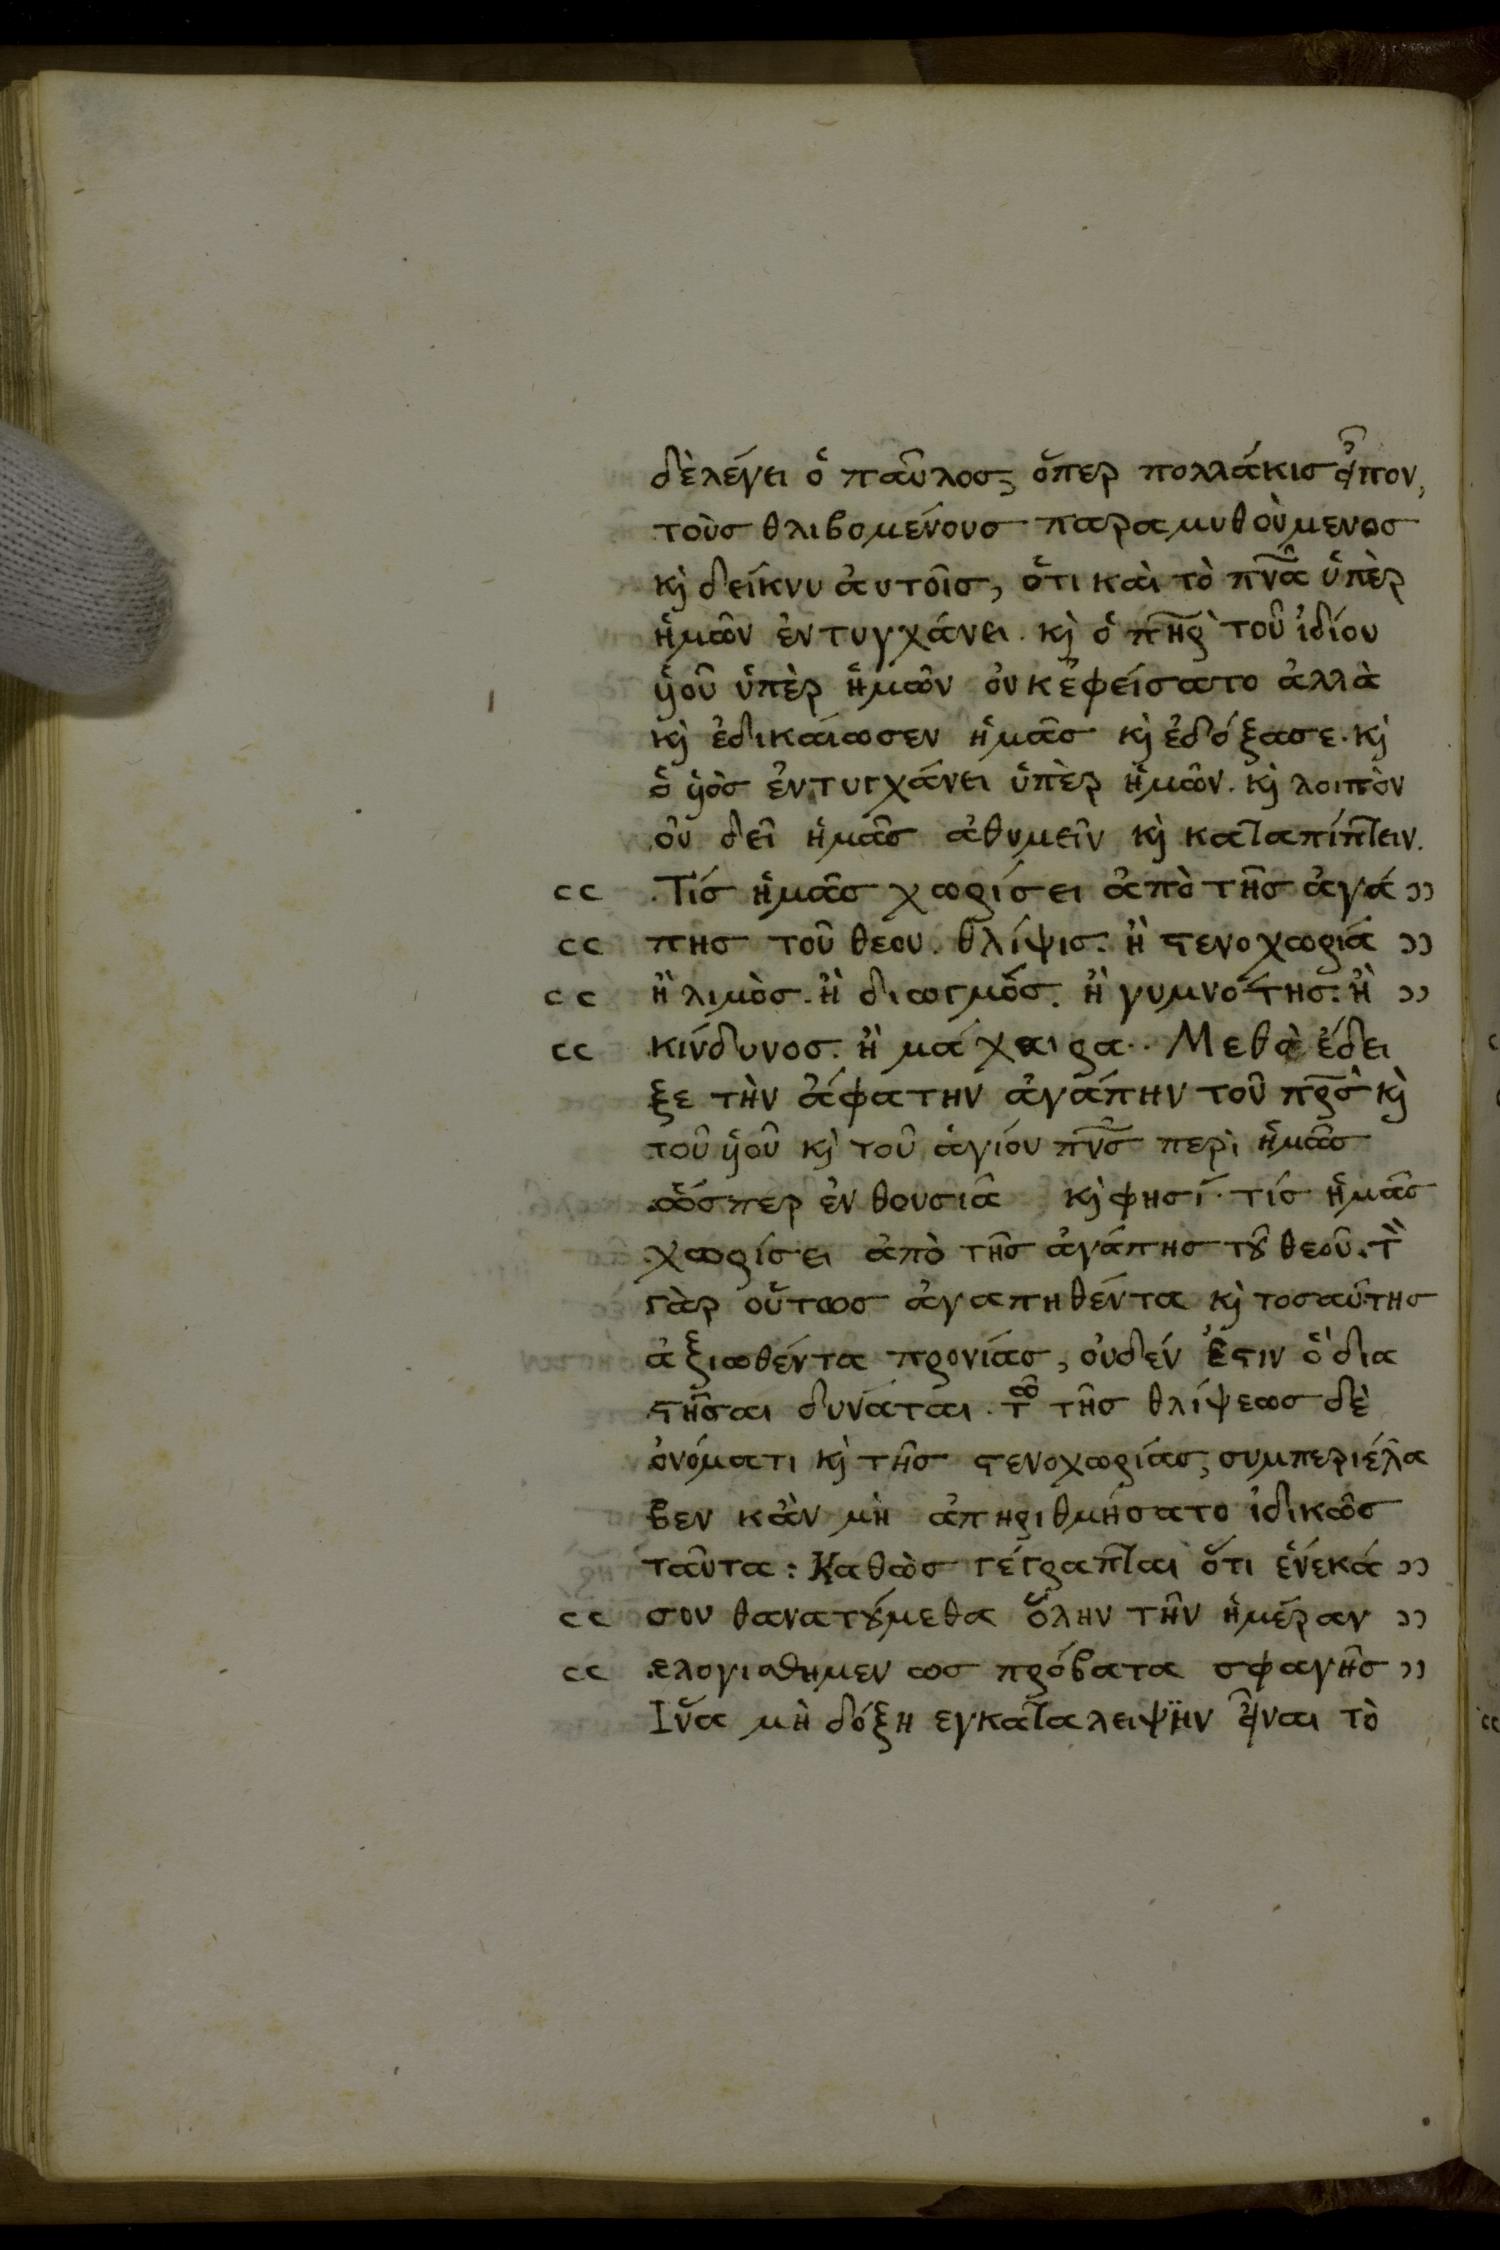 δὲ λέγει ὁ παῦλος, ὅπερ πολλάκις εἶπον,
τοὺς θλιβομένους παραμυθοὺμενος
κὶ δείκνυ ἀυτοῖς, ὅτι καὶ τὸ πν̅α̅ ὑπὲρ
ἡμῶν ἐντυγχάνει. κὶ ὁ πη̅ρ̅ τοῦ ἰδίου
ὑιοῦ ὑπὲρ ἡμῶν ὀυκ ἐφείσατο ἀλλὰ
κὶ ἐδικαίωσεν ἡμᾶς κὶ ἐδόξασε. κὶ
ὁ ὑιὸς ἐντυγχάνει ὑπὲρ ἡμῶν. κὶ λοιπὸν
οὐ δεῖ ἡμᾶς ἀθυμεῖν κὶ καταπίπτειν.
cc Τίς ἡμᾶς χωρίσει ἀπὸ τῆς ἀγά ››
cc πης τοῦ θεου. θλίψις. ἢ ϛενοχωρία ››
cc ἢ λιμὸς. ἢ διωγμὸς. ἢ γυμνότης. ἢ ››
cc κίνδυνος. ἢ μάχαιρα.. Μεθὸ ἔδει
ξε τὴν ἄφατην ἀγάπην τοῦ πρ̅ς̅ κὶ
τοῦ ὑιοῦ κὶ τοῦ ἁγίου πν̅ς̅ περὶ ἡμᾶς
ὥσπερ ἐνθουσιᾶ κὶ φησί. τίς ἡμᾶς
χωρίσει ἀπὸ τῆς ἀγάπης τȣ̃ θεοῦ. τ̀
γὰρ οὕτως ἀγαπηθέντα κὶ τοσαύτης
ἀξιωθέντα προνιάς, οὐδέν ἐϛιν ὃ δια
ϛῆσαι δυνάται. τῶ τῆς θλίψεως δὲ
ὀνόματι κὶ τῆς ϛενοχωρίας, συμπεριέλα
βεν κἂν μὴ ἀπηριθμήσατο ἰδικῶς
ταῦτα: Καθὼς γέγραπται ὅτι ἕνεκά ››
cc σου θανατȣ́μεθα ὅλην τῆν ἡμέραν ››
cc ελογιαθημεν ως πρόβατα σφαγῆς ››
Ἵνα μὴ δόξη εγκαταλειψϊην εἶναι τὸ